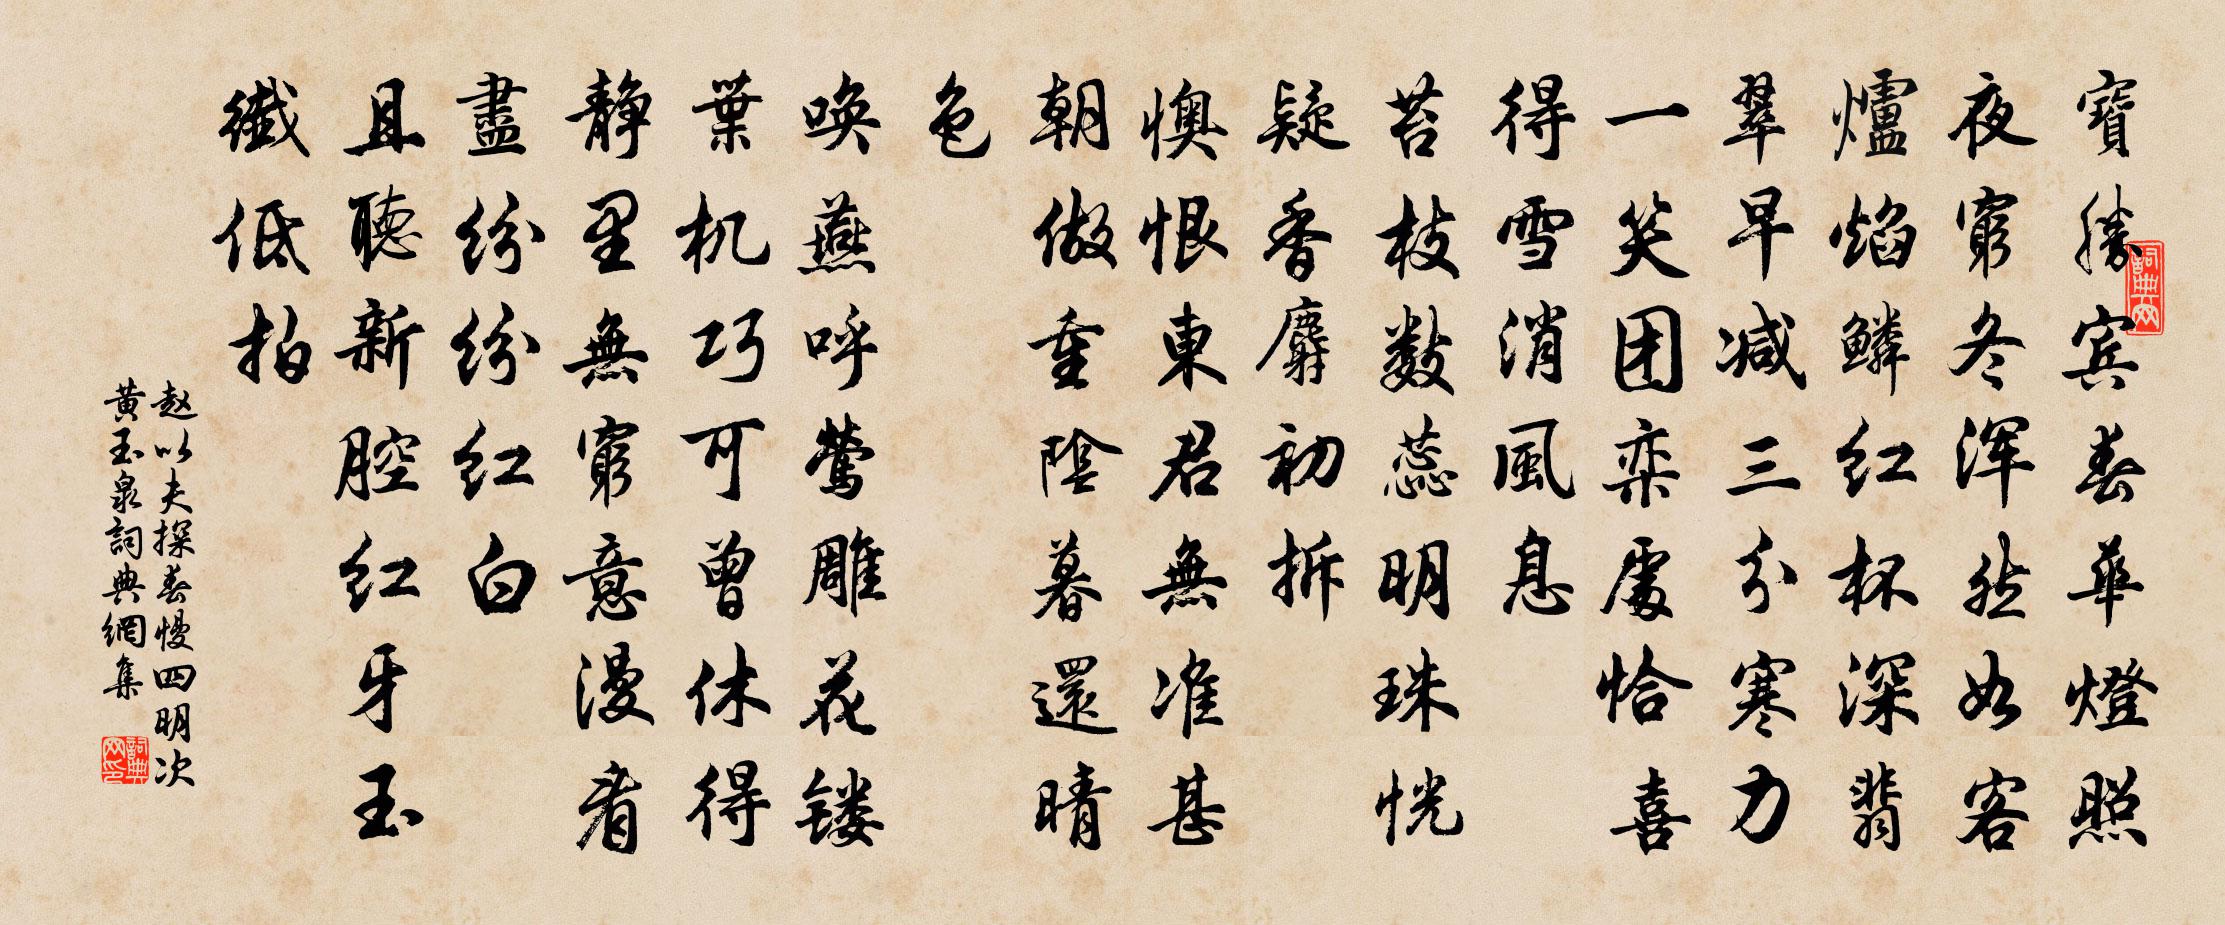 寶勝宾春華燈照
夜窮冬浑然如客
爐焰鱗红杯深翡
翠早减三分寒力
一笑团栾處恰喜
得雪消風息
苔枝数蕊明珠恍
疑香麝初拆
懊恨東君無准甚
朝做重陰暮還晴
色
唤燕呼莺雕花镂
葉机巧可曾休得
靜里無窮意漫看
盡纷纷红白
且聽新腔红牙玉
纖低拍
赵以夫探春慢四明次
黄玉泉詞典網集
詞典网
詞典网印